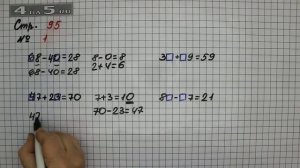 Стр. 95
№ 1
□8-4□=28 8-0=8 3□+□9=59
68-40=28 2+4=6
□7+23=70 7+3=10 8□-□7=21
47 70-23=47